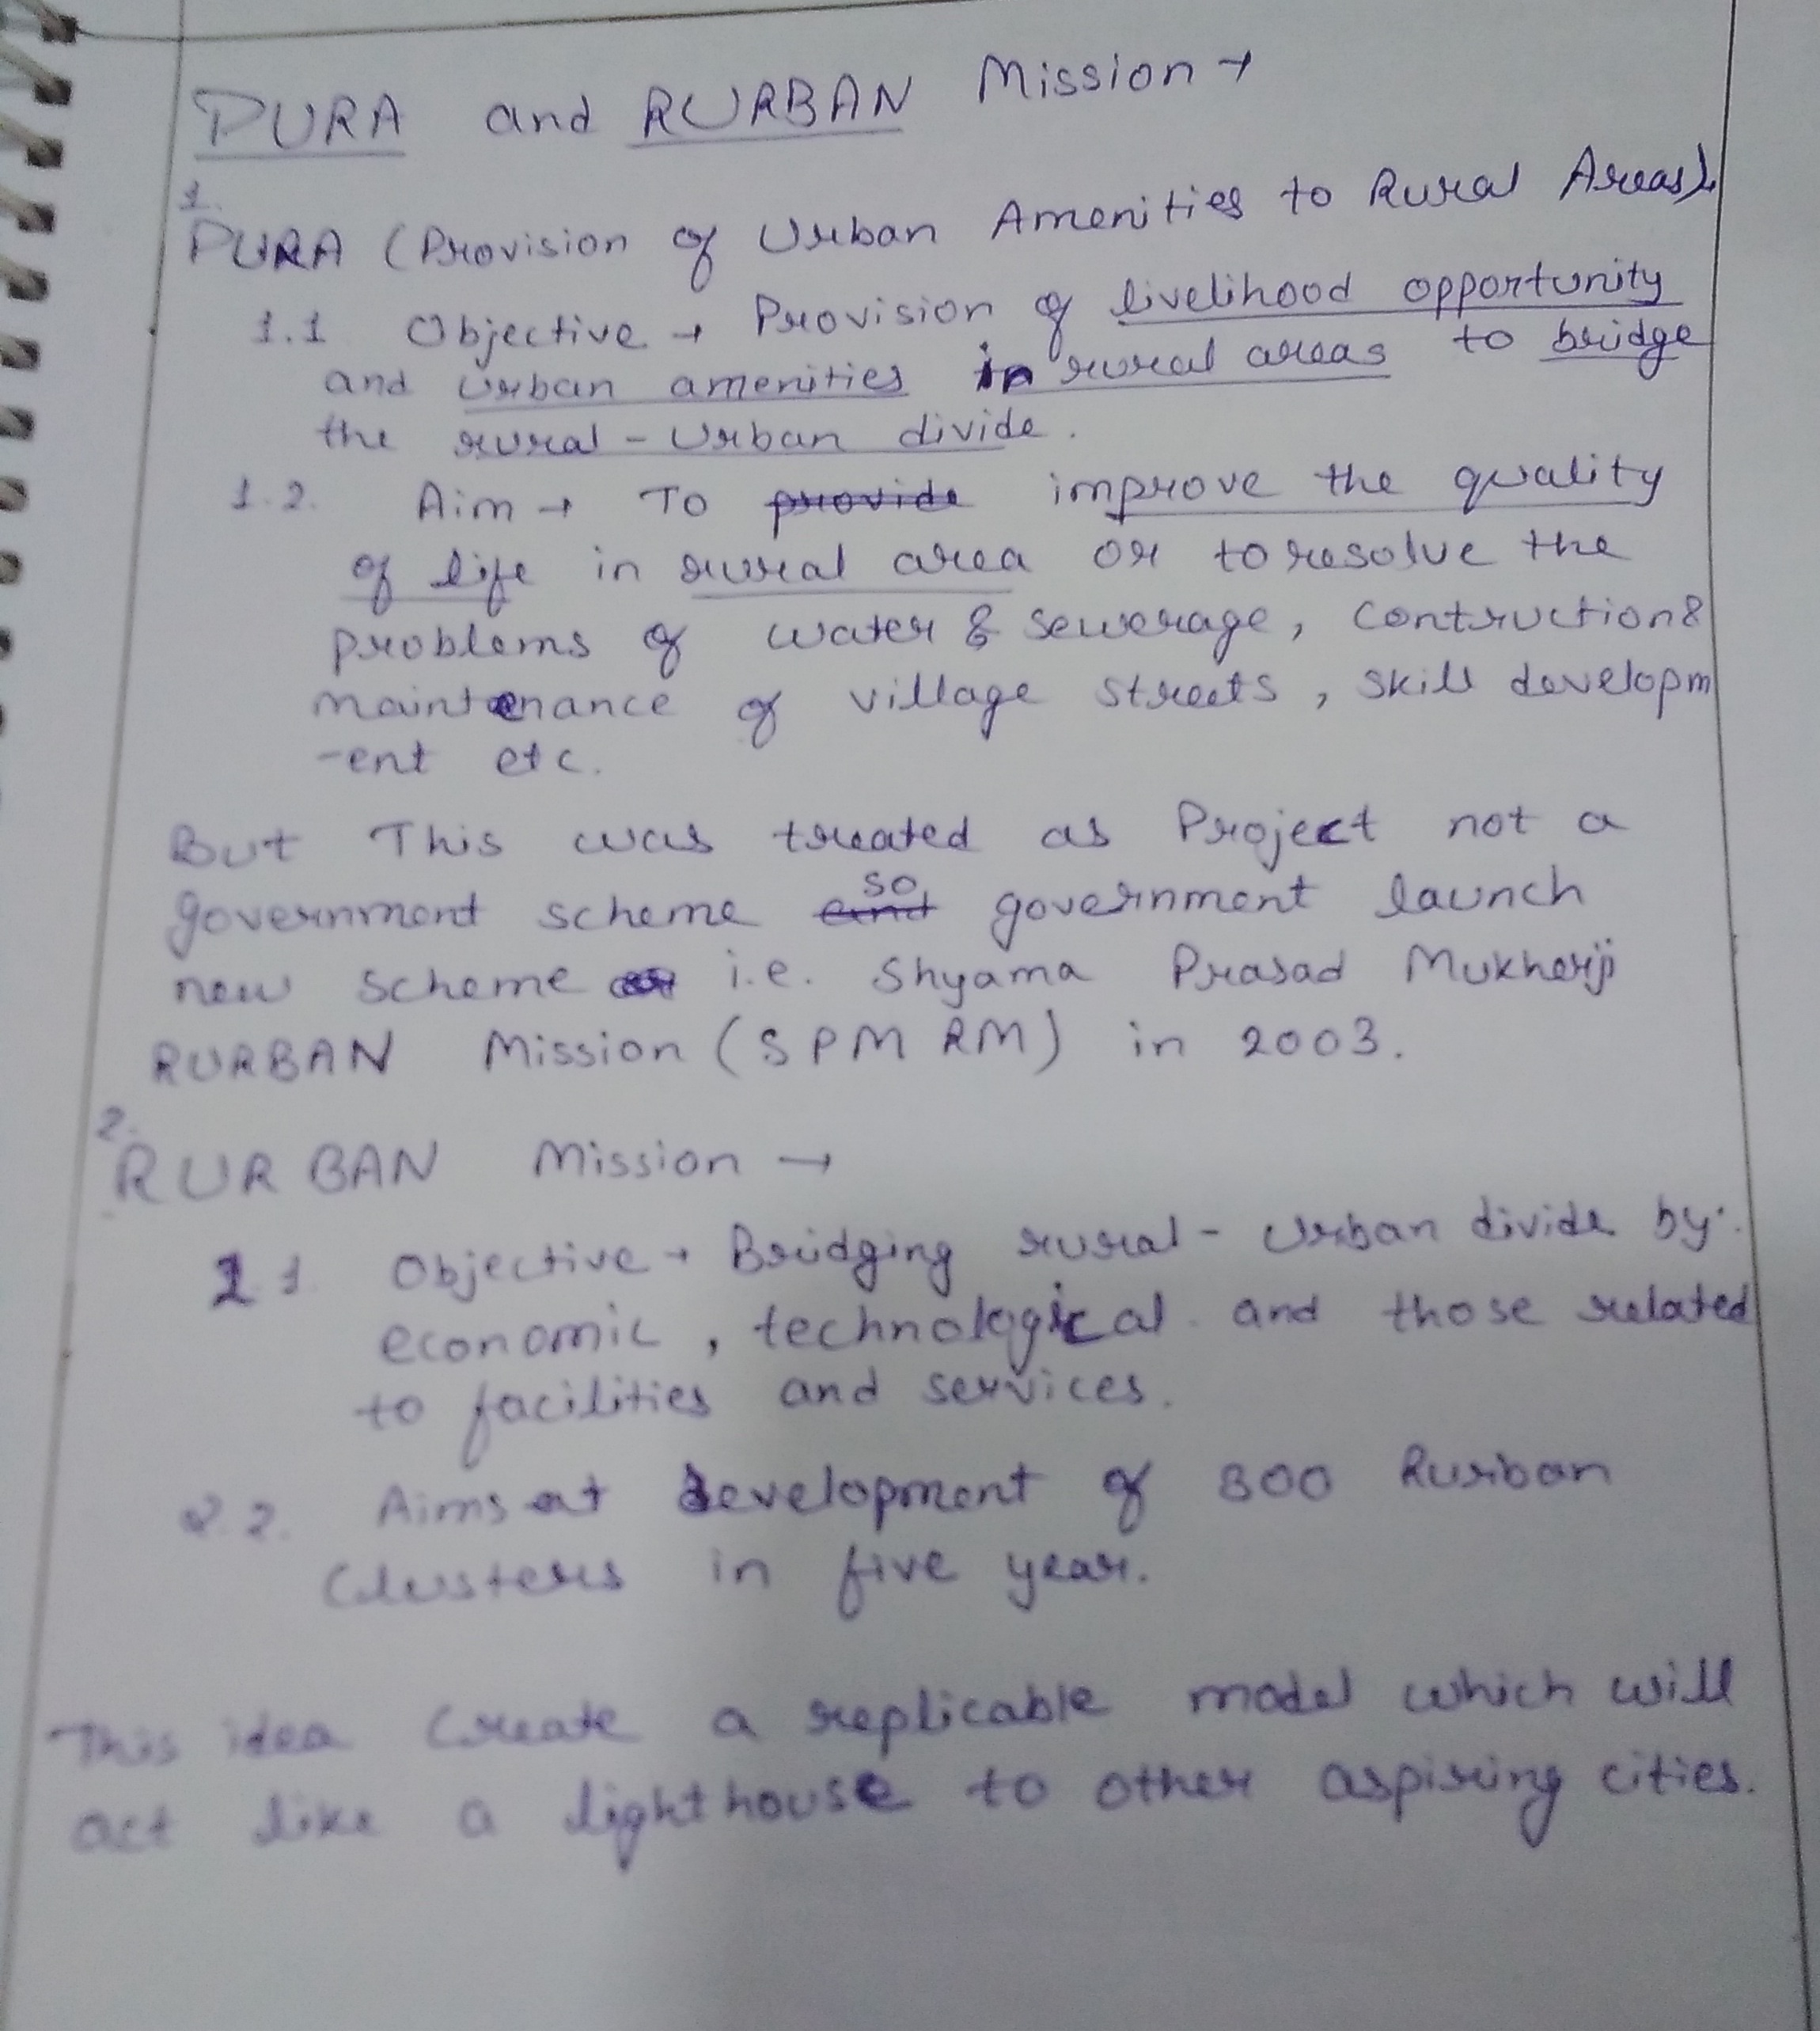 PURA and RURBAN Mission →
1.
PURA (Provision of Urban Amenities to Rural Areas)→
1.1 Objective → Provision of livelihood opportunity
and urban amenities in rural areas to bridge
the rural - Urban divide.
1.2. Aim → To provide improve the quality
of life in rural area or to resolve the
problems of water & sewerage, contruction &
maintenance of village streets, skill developm
-ent etc.
But This was treated as Project not a
government scheme and so government launch
new scheme i.e. Shyama Prasad Mukherji
RURBAN Mission (SPMRM) in 2003.
2.
RURBAN Mission →
2.1. Objective → Bridging rural - Urban divide by:
economic, technological and those related
to facilities and services.
2.2. Aims at development of 300 Rurban
Clusters in five year.
This idea create a replicable model which will
act like a lighthouse to other aspiring cities.